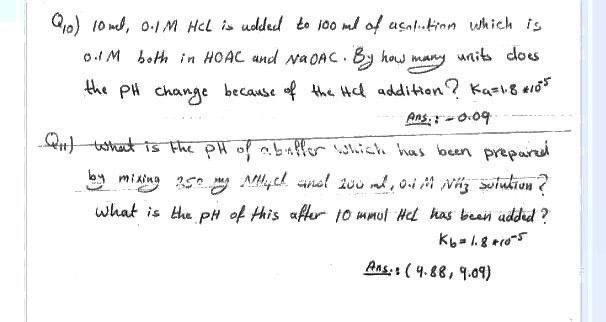 Q10) 10 ml, 0.1 M HCL is added to 100 ml of a solution which is
0.1 M both in HOAC and NaOAC. By how many units does
the PH change because of the Hcl addition? Ka=1.8 *10^-5
Ans.: -0.09
Q11) what is the PH of a buffer which has been prepared
by mixing 250 mg NH4cl and 200 ml, 0.1 M NH3 solution?
what is the pH of this after 10 mmol Hcl has been added?
Kb = 1.8 *10^-5
Ans.: (9.88, 9.09)